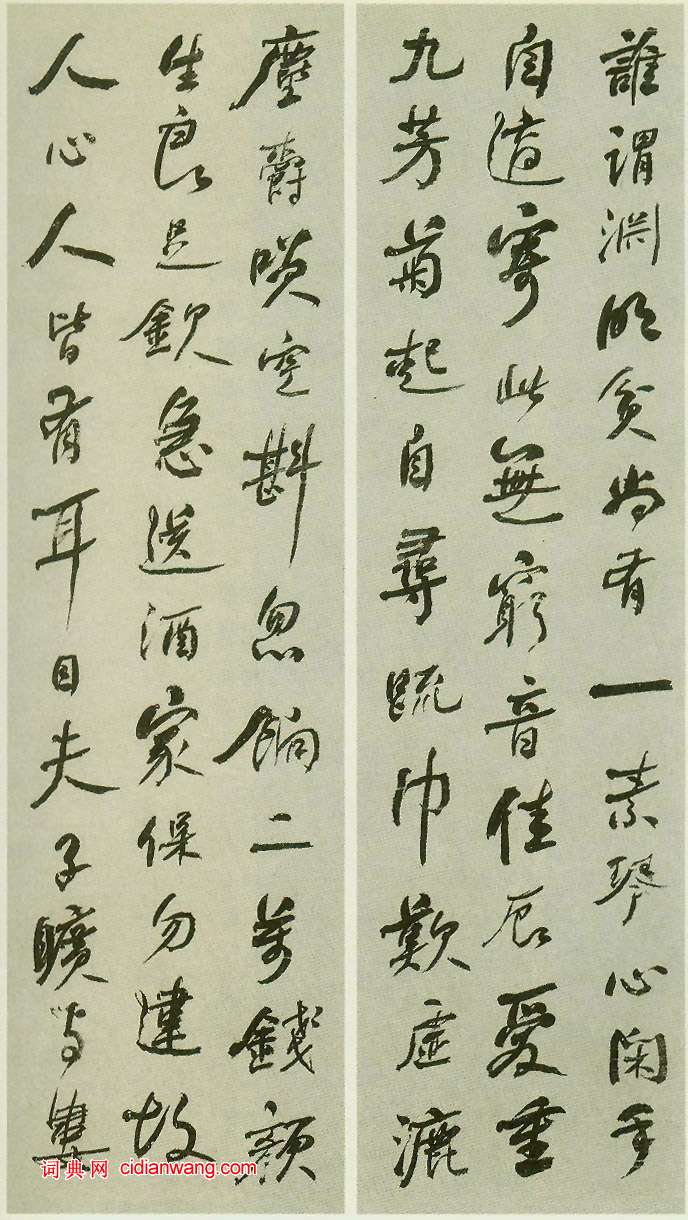 誰謂淵明貧尚有一素琴心閑手
自適寄此無窮音佳辰愛重
九芳菊起自尋疏巾歎虛漉
塵爵咲空斟忽餉二萬錢顏
生良足欽急送酒家保勿違故
人心人皆有耳目夫子曠與婁
词典网 cidianwang.com